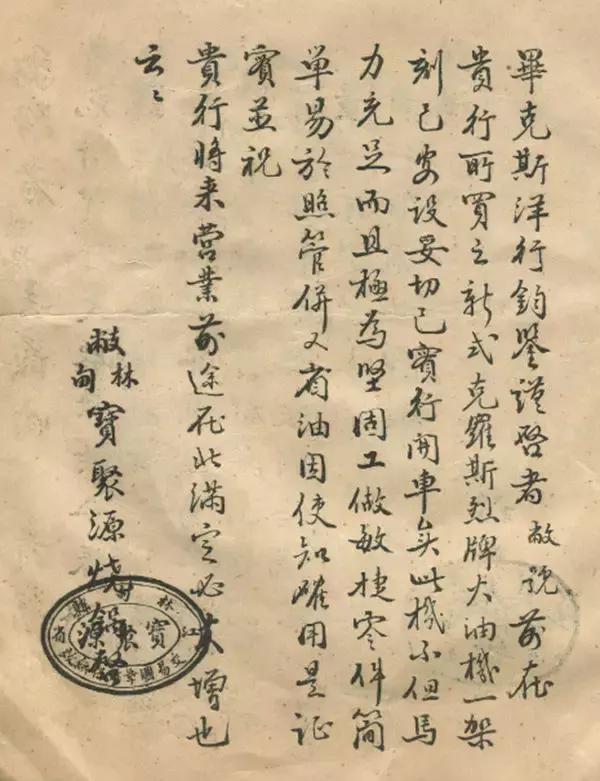 畢克斯洋行鈞鑒謹啓者敝號前在
貴行所買之新式克羅斯烈牌大油機一架
刻已安設妥切已實行開車矣此機不但馬
力充足而且極為堅固工做敏捷零件简
单易於照管併又省油因使知確用是証
實並祝
貴行將来营業前途在此满定必大增也
云々
林甸
敝
寶聚源烧鍋